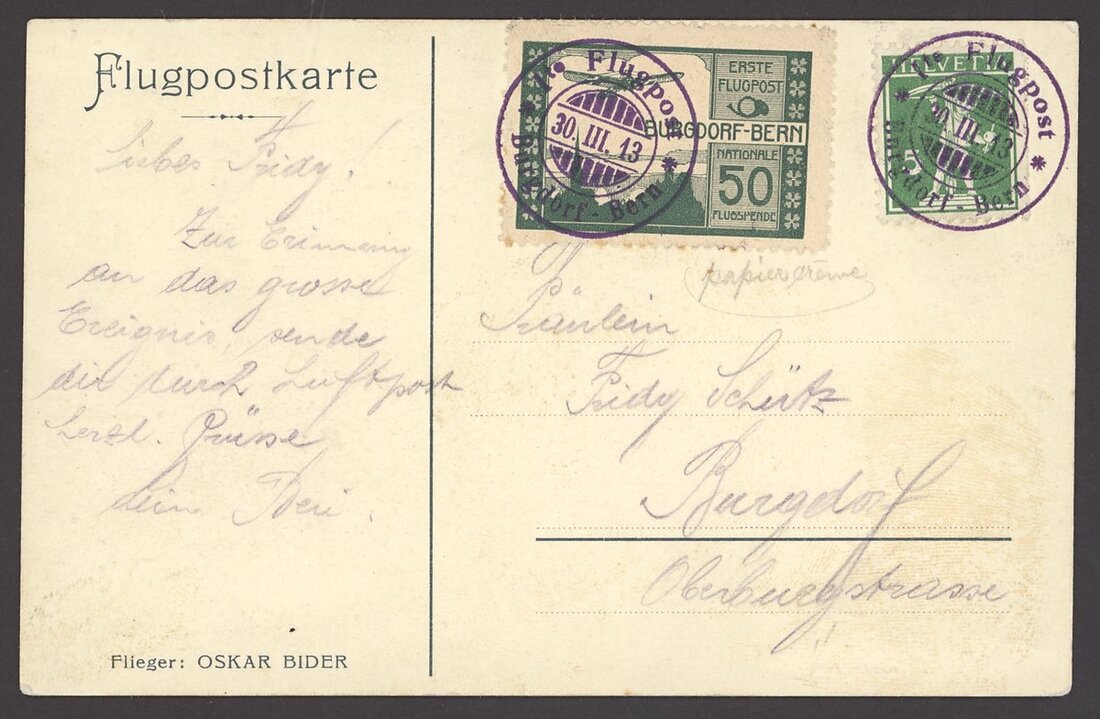 Flugpostkarte
Liebes Fridy!
Zur Erinnerung
an das grosse
Ereignis, sende
dir durch Luftpost
herzl. Grüsse
Dein
ERSTE
FLUGPOST
BURGDORF-BERN
NATIONALE
50
FLUGSPENDE
Flugpost
30. III. 13
Burgdorf - Bern
HELVETIA
5
Flugpost
30. III. 13
Burgdorf - Bern
papier crème
Fräulein
Fridy Schütz
Burgdorf
Oberburgstrasse
Flieger: OSKAR BIDER